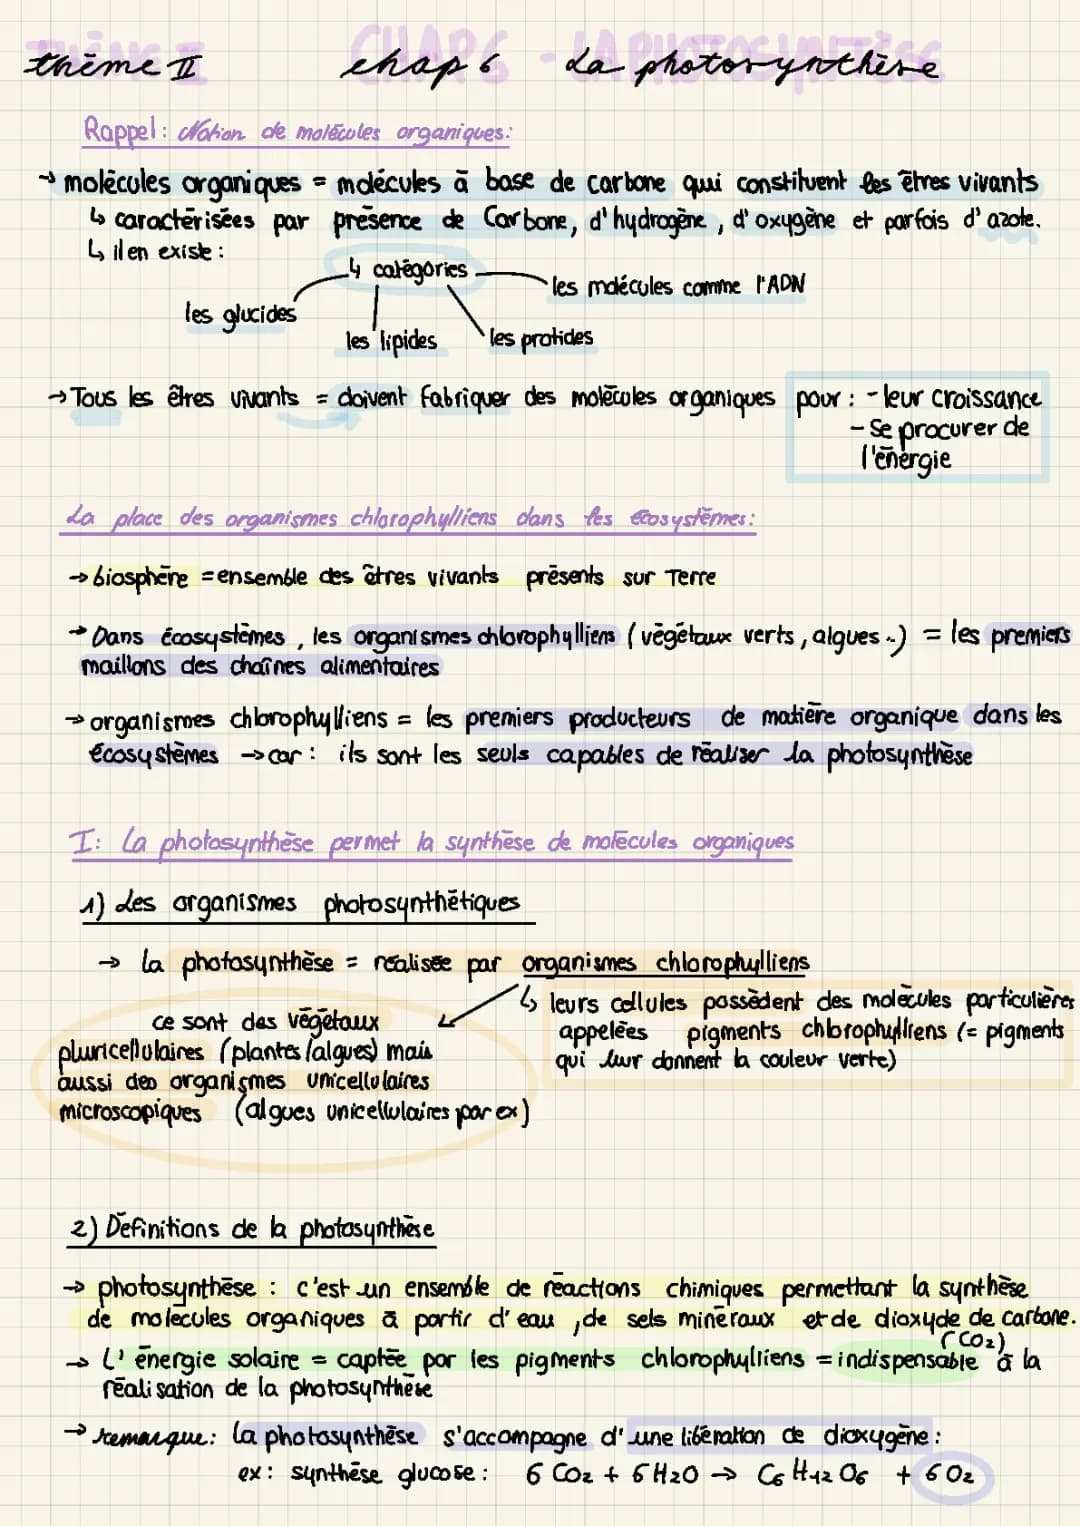 thème II chap 6 La photosynthèse
THÈME II CHAP 6 - LA PHOTOSYNTHÈSE
Rappel : Notion de molécules organiques :
→ molécules organiques = molécules à base de carbone qui constituent les êtres vivants
↳ caractérisées par présence de Carbone, d'hydrogène, d'oxygène et parfois d'azote.
↳ il en existe :
4 catégories
les molécules comme l'ADN
les glucides
les lipides
les protides
→ Tous les êtres vivants = doivent fabriquer des molécules organiques pour : - leur croissance
- se procurer de
l'énergie
La place des organismes chlorophylliens dans les écosystèmes :
→ biosphère = ensemble des êtres vivants présents sur Terre
→ Dans écosystèmes, les organismes chlorophylliens (végétaux verts, algues..) = les premiers
maillons des chaînes alimentaires
→ organismes chlorophylliens = les premiers producteurs de matière organique dans les
écosystèmes → car : ils sont les seuls capables de réaliser la photosynthèse
I : La photosynthèse permet la synthèse de molécules organiques
1) Les organismes photosynthétiques
→ la photosynthèse = réalisée par organismes chlorophylliens
↳ leurs cellules possèdent des molécules particulières
appelées pigments chlorophylliens (= pigments
qui leur donnent la couleur verte)
ce sont des végétaux
pluricellulaires (plantes/algues) mais
aussi des organismes unicellulaires
microscopiques (algues unicellulaires par ex)
2) Définitions de la photosynthèse
→ photosynthèse : c'est un ensemble de réactions chimiques permettant la synthèse
de molécules organiques à partir d'eau, de sels minéraux et de dioxyde de carbone.
(CO2)
→ L'énergie solaire = captée par les pigments chlorophylliens = indispensable à la
réalisation de la photosynthèse
→ remarque : la photosynthèse s'accompagne d'une libération de dioxygène :
ex : synthèse glucose : 6 CO2 + 6 H2O → C6 H12 O6 + 6 O2